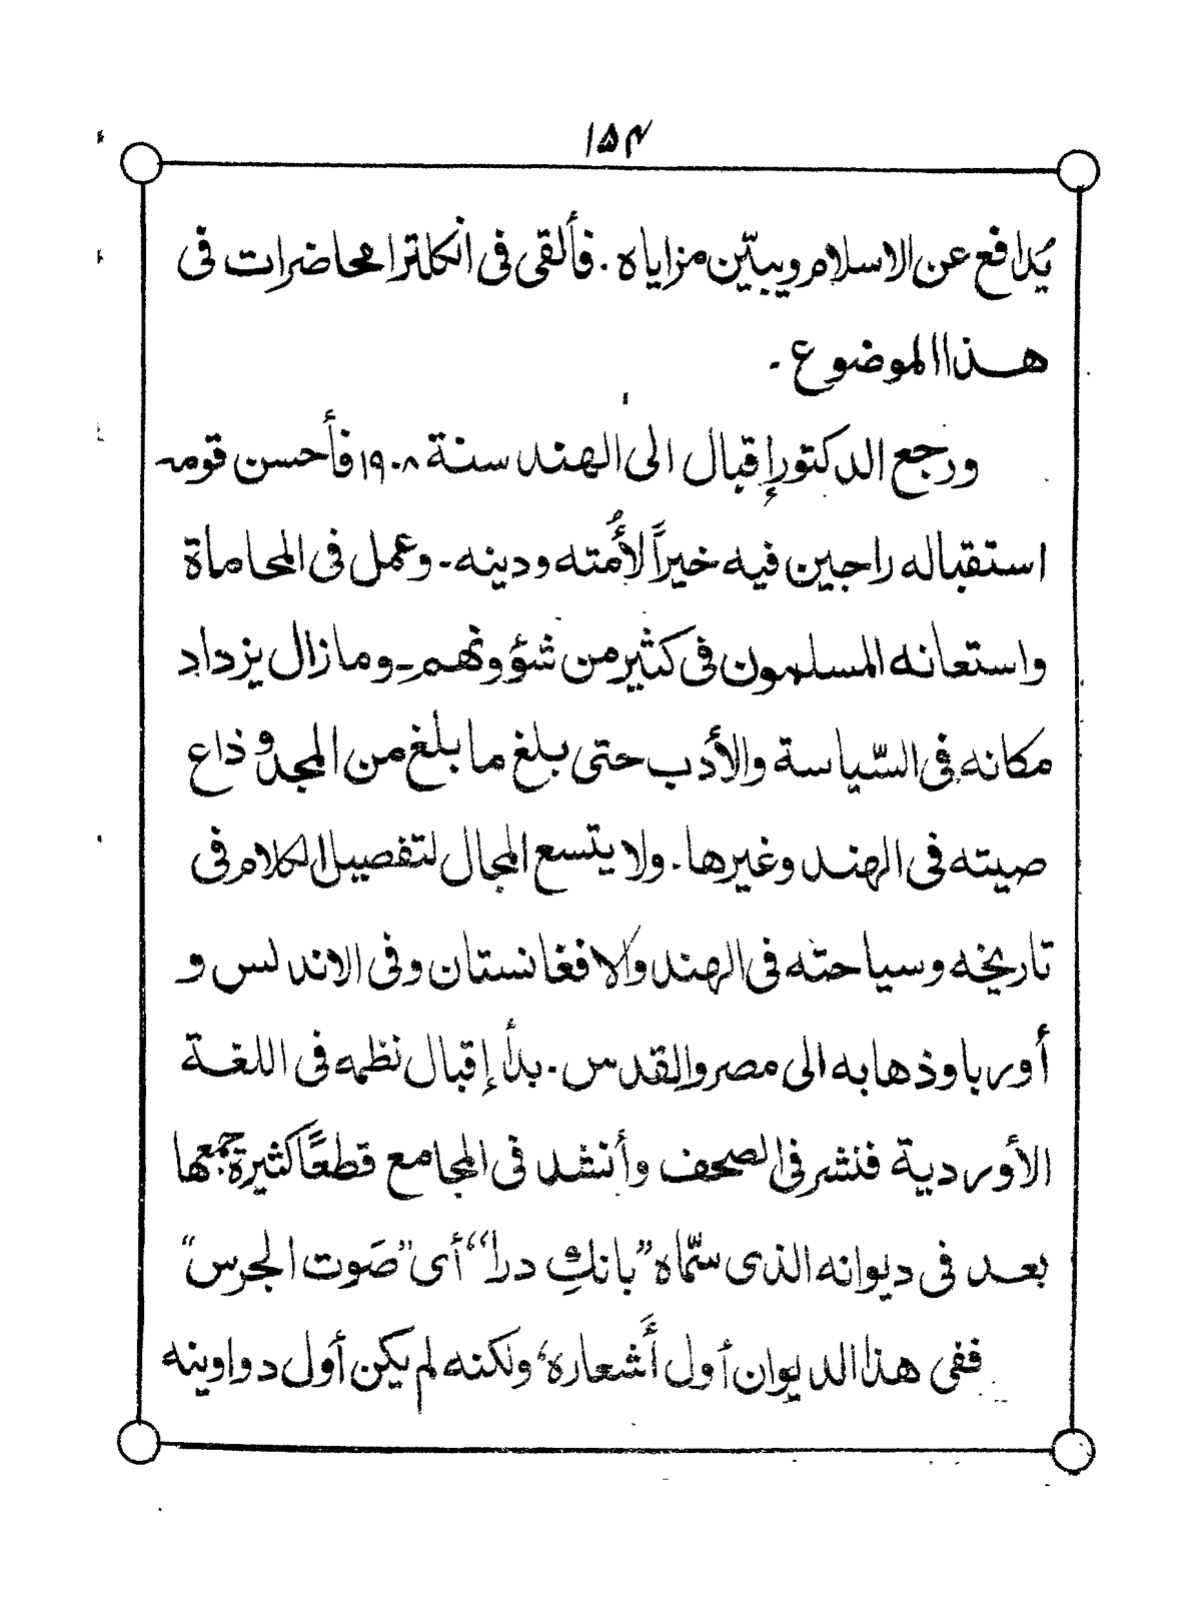 ۱۵۴
يُدافع عن الاسلام ويبيّن مزاياه . فألقى فى انكلترا محاضرات فى
هذا الموضوع .
ورجع الدكتور إقبال الى الهند سنة ١٩٠٨ فأحسن قومه
استقباله راجين فيه خيراً لأُمته ودينه . وعمل فى المحاماة
واستعانه المسلمون فى كثير من شؤونهم ـ وما زال يزداد
مكانه فى السّياسة والأدب حتى بلغ ما بلغ من المجد و ذاع
صيته فى الهند وغيرها . ولا يتسع المجال لتفصيل الكلام فى
تاريخه وسياحته فى الهند والافغانستان وفى الاندلس و
أوربا وذهابه الى مصر والقدس . بدأ إقبال نظمه فى اللغة
الأوردية فنشر فى الصحف وأنشد فى المجامع قطعاً كثيرة جمعها
بعد فى ديوانه الذى سمّاه ”بانگِ درا“ أى ”صَوت الجرس“
ففى هذا الديوان أول أَشعاره، ولكنه لم يكن أول دواوينه